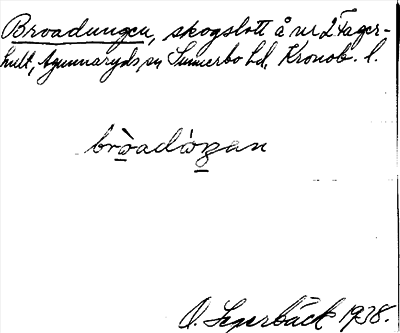 Broadungen, skogslott å nr 2 Fager-
hult, Agunnaryds sn Sunnerbo hd, Kronob. l.
bròadàŋan
O. Segerbäck 1938.